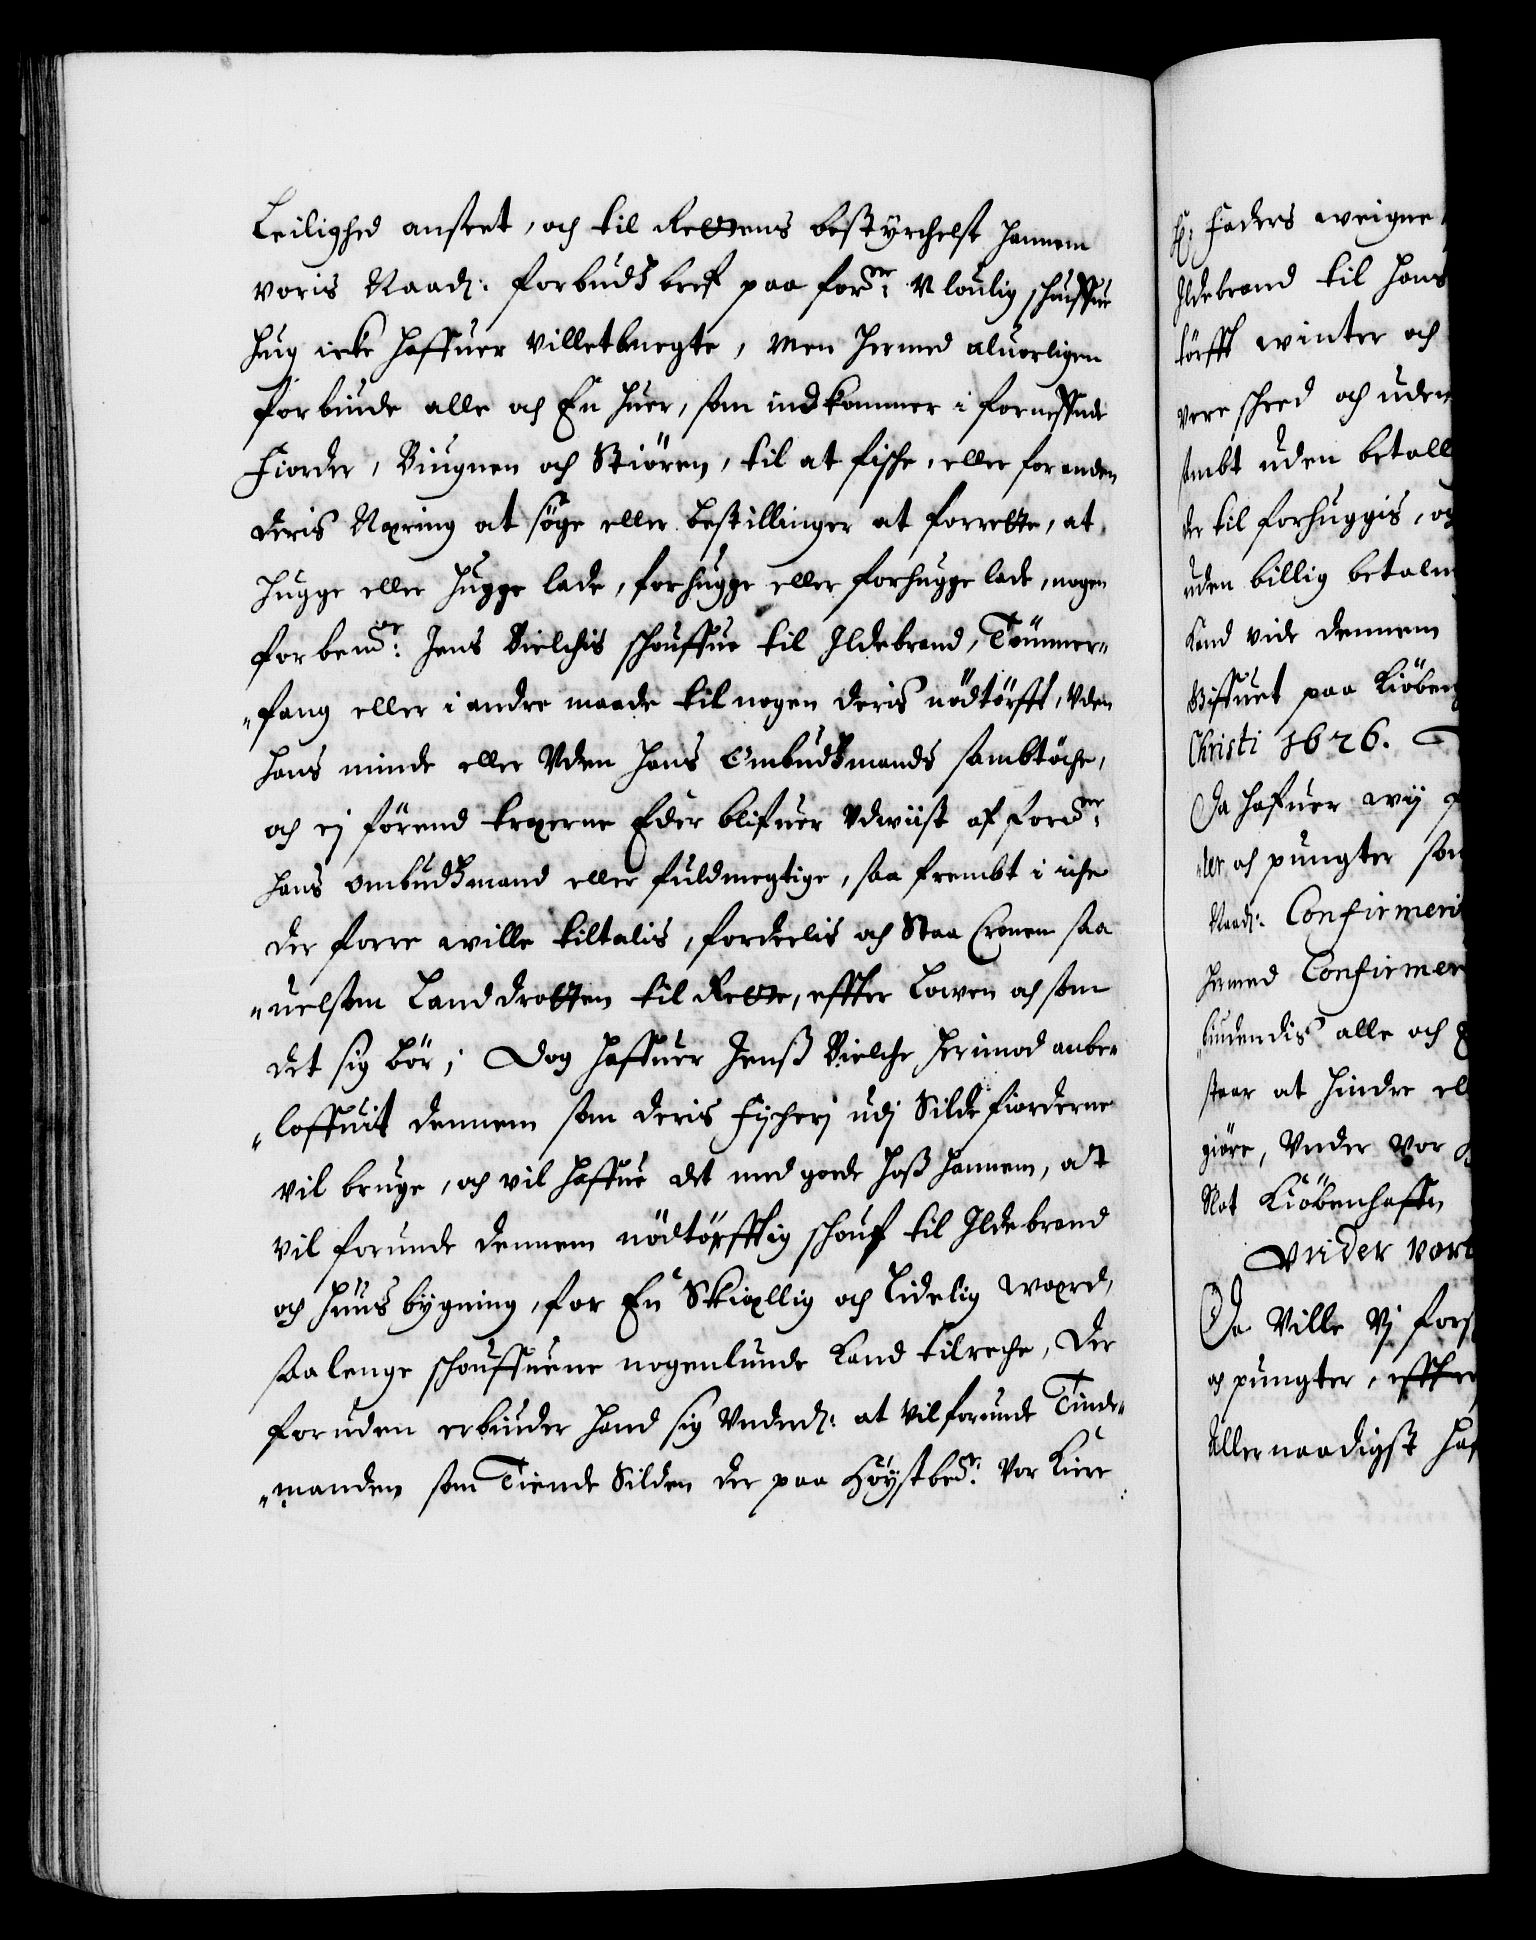 Leilighed anseet, och til Rettens bestyrchelse hannem
voris Naad: forbudsbref paa fordne: Vloulig schouffue
hug icke haffuer villet benegte, men hermed aluorligen
forbiude alle och En huer, som indkommer i fornefnde
Fiorder, Biugnen och Stiören, til at fische, eller for anden
deris Næring at söge eller bestillinger at forrette, at
hugge eller hugge lade, forhugge eller forhugge lade, nogen
forbemte: Jens Bielchis schouffue til Ildebrand, Tömmer-
"fang eller i andre maade til nogen deris nödtörfft, Vden
hans minde eller Vden hans Ombudsmands sambtöche,
och ej förend træerne Eder blifuer Vdwiist af fordne:
hans ombudsmand eller fuldmegtige, saa frembt i iche
der forre wille tiltalis, fordeelis och staa Cronen saa
"uelsom Landdrotten til Rette, effter Lowen och som
det sig bör; Dog haffuer Jenss Bielche herimod anbe-
"loffuit dennem som deris Fischerj udj Sildefiorderne
vil bruge, och vil haffue det med goede hoss hannem, at
vil forunde dennem nödtörfftig schouf til Ildebrand
och huusbygning, for En Skiællig och lidelig wærd,
saalenge schouffuene nogenlunde kand tilreche, der
foruden erbiuder hand sig Vnderd: at vil forunde Tinde-
"manden som Tiende Silden der paa Höystbete: Vor Kiere
H: Faders weigne
Ildebrand til hans
törfft winter och
vere scheed och uden
sambt uden betall
der til forhuggis, og
uden billig betaln
kand vide dennem
Giffuet paa Kiöben
Christi 1626.
Da hafuer wij
"ter och pungter som
Naad: Confirmeri
hermed Confirmer
"biudendis alle och E
staar at hindre ell
giöre, Vnder vor
Slot Kiöbenhaffn
Vnder vort
Da Ville Vj fors
och pungter, effter
Allernaadigst haf